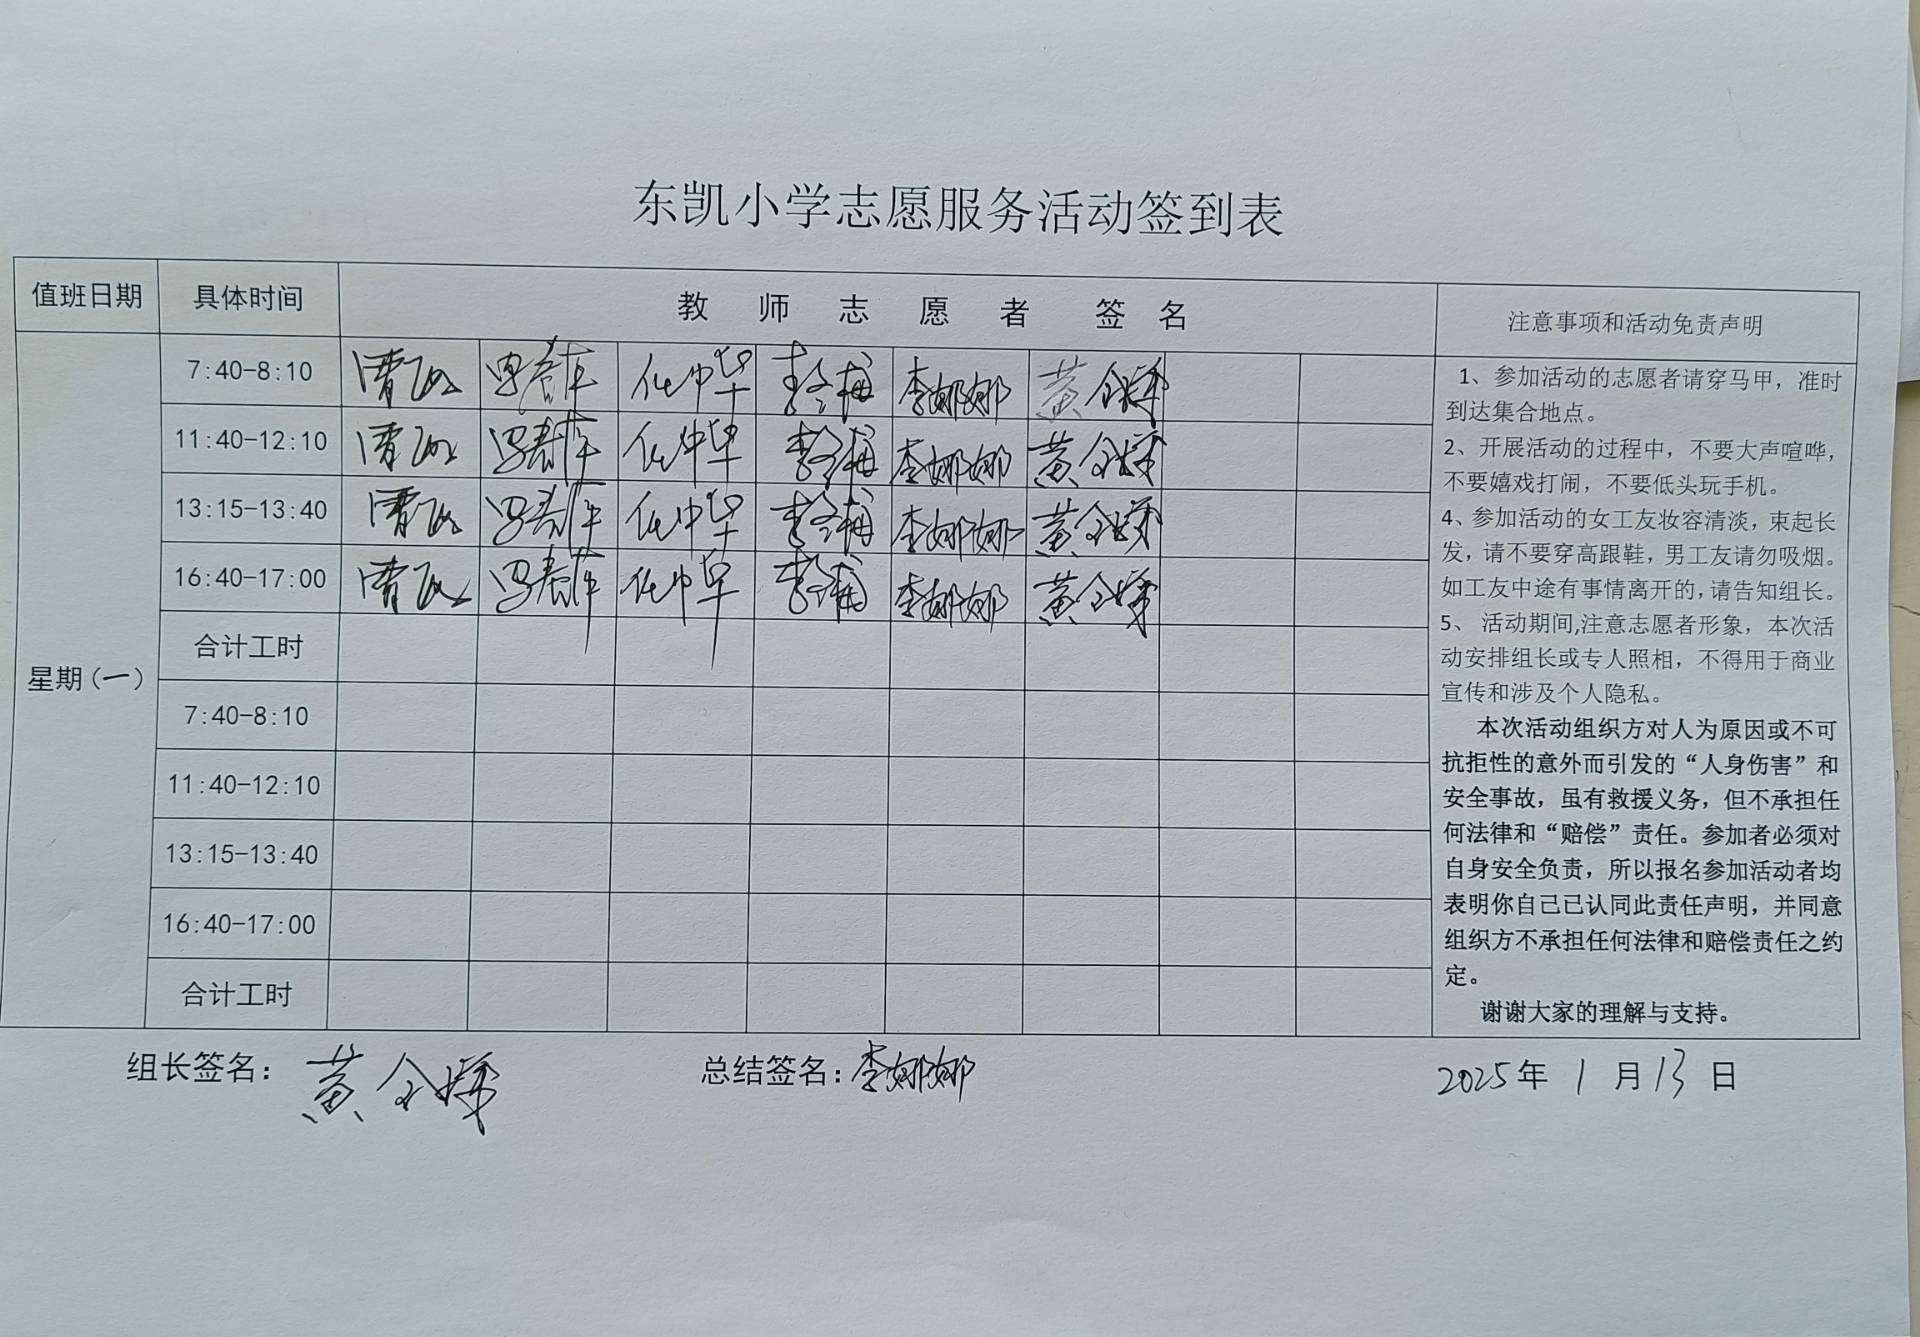 东凯小学志愿服务活动签到表
值班日期 具体时间 教师志愿者签名 注意事项和活动免责声明
星期(一)
7:40-8:10 李娜娜 黄
11:40-12:10 李娜娜 黄
13:15-13:40 李娜娜 黄
16:40-17:00 李娜娜 黄
合计工时
7:40-8:10
11:40-12:10
13:15-13:40
16:40-17:00
合计工时
1、参加活动的志愿者请穿马甲，准时
到达集合地点。
2、开展活动的过程中，不要大声喧哗，
不要嬉戏打闹，不要低头玩手机。
4、参加活动的女工友妆容清淡，束起长
发，请不要穿高跟鞋，男工友请勿吸烟。
如工友中途有事情离开的，请告知组长。
5、 活动期间,注意志愿者形象，本次活
动安排组长或专人照相，不得用于商业
宣传和涉及个人隐私。
本次活动组织方对人为原因或不可
抗拒性的意外而引发的“人身伤害”和
安全事故，虽有救援义务，但不承担任
何法律和“赔偿”责任。参加者必须对
自身安全负责，所以报名参加活动者均
表明你自己已认同此责任声明，并同意
组织方不承担任何法律和赔偿责任之约
定。
谢谢大家的理解与支持。
组长签名： 黄 总结签名：李娜娜 2025年 1 月 13 日